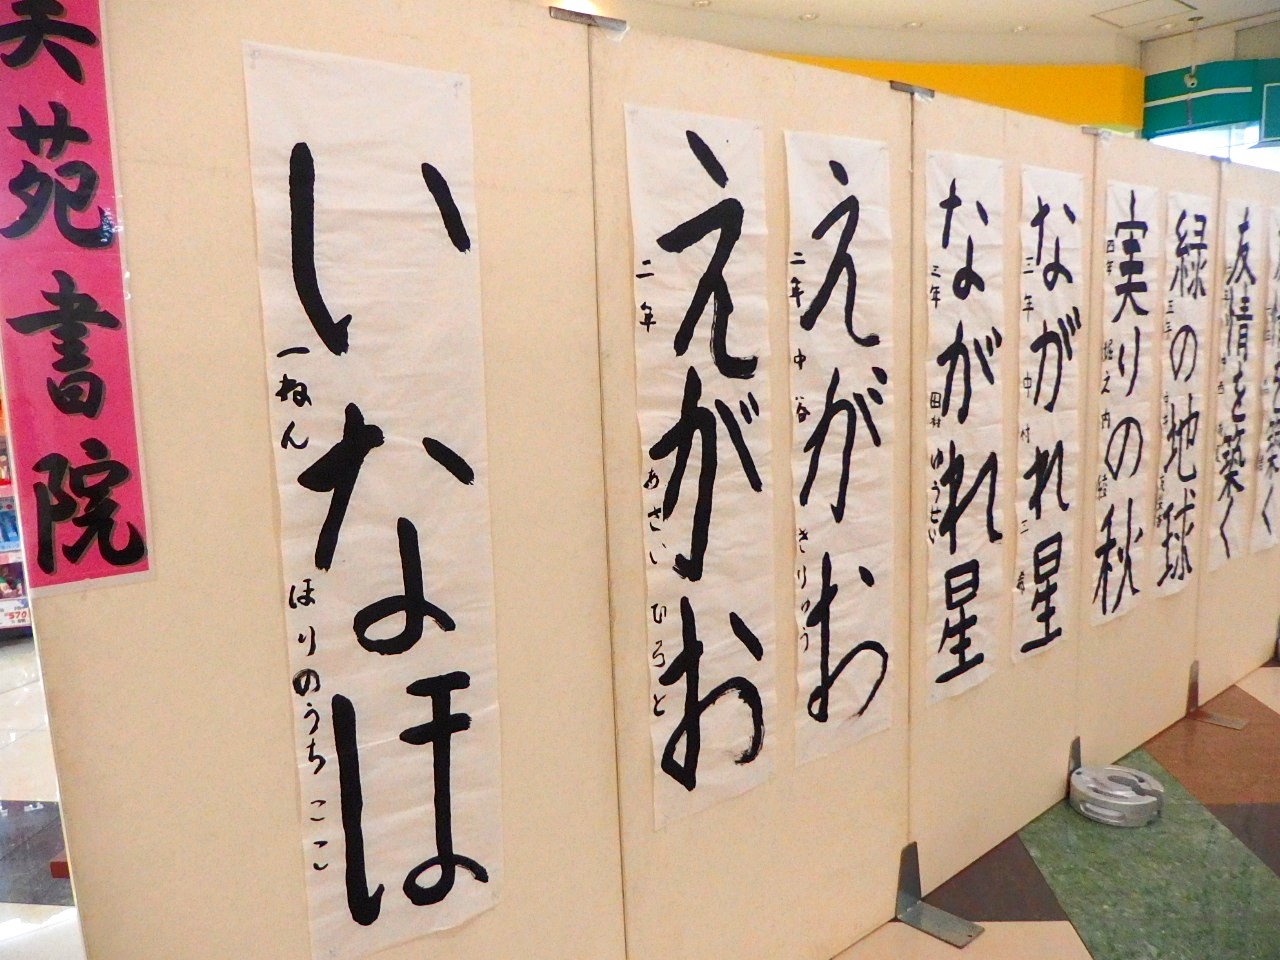 苑書院
いなほ
一ねん ほりのうち ここ
えがお
二年 あさい ひろと
えがお
二年 中谷 きりゅう
ながれ星
三年 田村 ゆうせい
ながれ星
三年 中村
実りの秋
四年 堀之内
緑の地球
五年
友情を築く
570